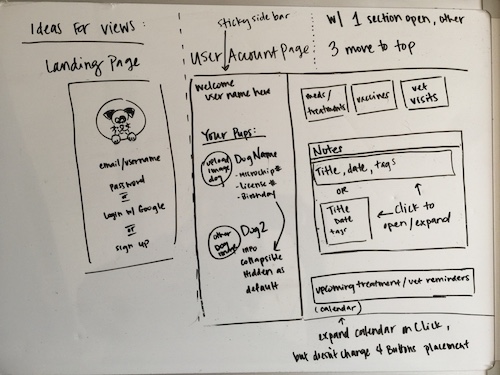 Ideas for views:
Landing Page
email/username
password
or
login w/ Google
or
sign up
sticky side bar
User Account Page
Welcome
user name here
Your Pups:
upload
image
dog
Dog Name
- Microchip #
- License #
- Birthday
other
Dog
image
Dog 2
info
collapsible
Hidden as
default
w/ 1 section open, other
3 move to top
meds/
treatments
vaccines
vet
visits
Notes
Title, date, tags
OR
Title
Date
tags
Click to
open/expand
upcoming treatment/vet reminders
(calendar)
expand calendar on click,
but doesn't change 4 Buttons placement